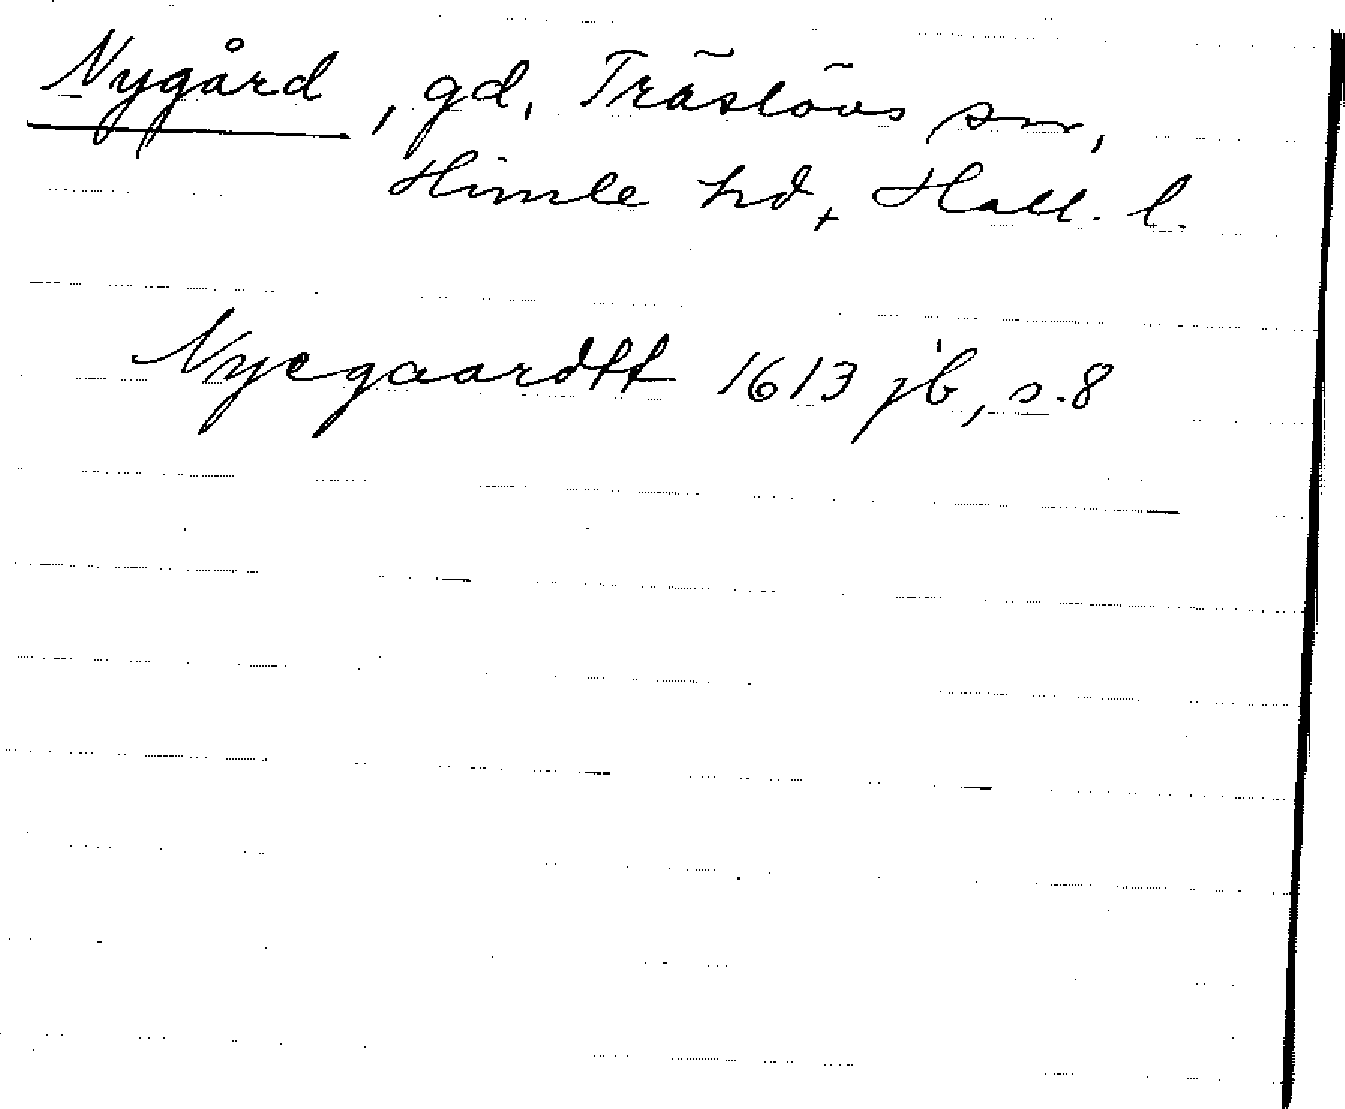 Nygård, gd, Träslövs sn,
Himle hd, Hall. l.
Nyegaardtt 1613 jb, s.8